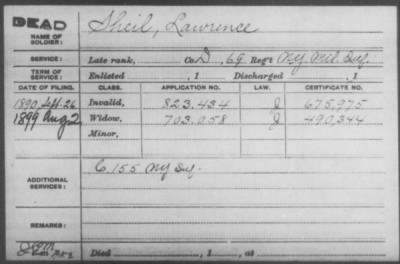 DEAD
NAME OF SOLDIER: Sheil, Lawrence
SERVICE: Late rank, Co. D, 69 Reg't N.Y. Mil. Inf.
TERM OF SERVICE: Enlisted , 1 Discharged , 1
DATE OF FILING. CLASS. APPLICATION NO. LAW. CERTIFICATE NO.
1890, Sept. 26 Invalid, 823,434 J 675,975
1899 Aug 2 Widow, 703,058 J 490,344
Minor,
ADDITIONAL SERVICES: C. 155 N.Y. Inf.
REMARKS:
Died , 1 , at